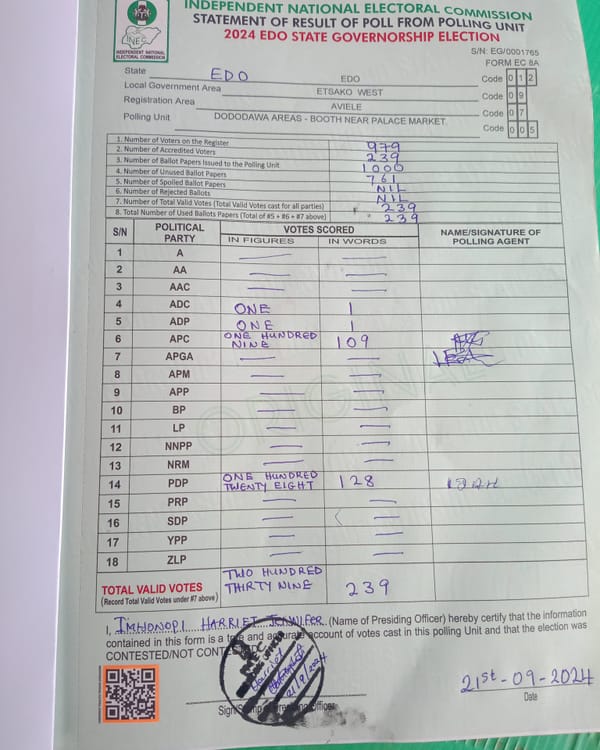 INDEPENDENT NATIONAL ELECTORAL COMMISSION
STATEMENT OF RESULT OF POLL FROM POLLING UNIT
2024 EDO STATE GOVERNORSHIP ELECTION
INEC
INDEPENDENT NATIONAL
ELECTORAL COMMISSION
S/N: EG/0001765
FORM EC 8A
State EDO EDO Code 0 1 2
Local Government Area ETSAKO WEST Code 0 9
Registration Area AVIELE Code 0 7
Polling Unit DODODAWA AREAS - BOOTH NEAR PALACE MARKET Code 0 0 5
1. Number of Voters on the Register 979
2. Number of Accredited Voters 239
3. Number of Ballot Papers Issued to the Polling Unit 1000
4. Number of Unused Ballot Papers 761
5. Number of Spoiled Ballot Papers NIL
6. Number of Rejected Ballots NIL
7. Number of Total Valid Votes (Total Valid Votes cast for all parties) 239
8. Total Number of Used Ballots Papers (Total of #5 + #6 + #7 above) 239
S/N POLITICAL PARTY VOTES SCORED NAME/SIGNATURE OF POLLING AGENT
IN FIGURES IN WORDS
1 A — —
2 AA — —
3 AAC — —
4 ADC ONE 1
5 ADP ONE 1
6 APC ONE HUNDRED NINE 109
7 APGA — —
8 APM — —
9 APP — —
10 BP — —
11 LP — —
12 NNPP — —
13 NRM — —
14 PDP ONE HUNDRED TWENTY EIGHT 128
15 PRP — —
16 SDP — —
17 YPP — —
18 ZLP — —
ORIGINAL
TOTAL VALID VOTES TWO HUNDRED THIRTY NINE 239
(Record Total Valid Votes under #7 above)
I, IMHONOPI HARRIET JENNIFER (Name of Presiding Officer) hereby certify that the information
contained in this form is a true and accurate account of votes cast in this polling Unit and that the election was
CONTESTED/NOT CONTESTED
21st-09-2024
Date